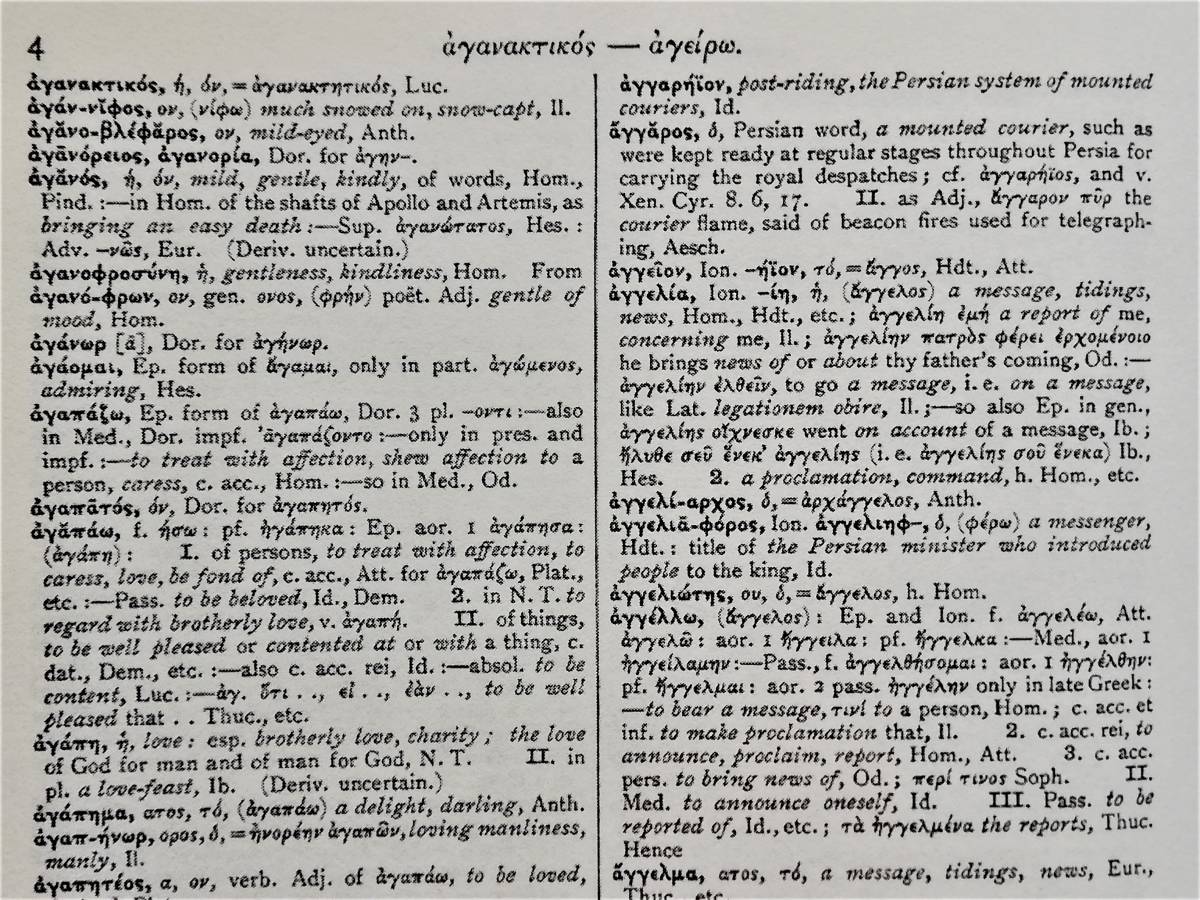 4
ἀγανακτικός — ἀγείρω.
ἀγανακτικός, ή, όν, = ἀγανακτητικός, Luc.
ἀγάν-νῐφος, ον, (νίφω) much snowed on, snow-capt, Il.
ἀγᾰνο-βλέφᾰρος, ον, mild-eyed, Anth.
ἀγᾱνόρειος, ἀγανορία, Dor. for ἀγην-.
ἀγᾰνός, ή, όν, mild, gentle, kindly, of words, Hom.,
Pind. :—in Hom. of the shafts of Apollo and Artemis, as
bringing an easy death :—Sup. ἀγανώτατος, Hes. :
Adv. -νῶς, Eur. (Deriv. uncertain.)
ἀγανοφροσύνη, ἡ, gentleness, kindliness, Hom. From
ἀγανό-φρων, ον, gen. ονος, (φρήν) poët. Adj. gentle of
mood, Hom.
ἀγάνωρ [ᾱ], Dor. for ἀγήνωρ.
ἀγάομαι, Ep. form of ἄγαμαι, only in part. ἀγώμενος,
admiring, Hes.
ἀγαπάζω, Ep. form of ἀγαπάω, Dor. 3 pl. -οντι :—also
in Med., Dor. impf. 'ᾱγαπάζοντο :—only in pres. and
impf. :—to treat with affection, shew affection to a
person, caress, c. acc., Hom. :—so in Med., Od.
ἀγαπᾱτός, όν, Dor. for ἀγαπητός.
ἀγᾰπάω, f. ήσω : pf. ἠγάπηκα : Ep. aor. 1 ἀγάπησα :
(ἀγάπη) : I. of persons, to treat with affection, to
caress, love, be fond of, c. acc., Att. for ἀγαπάζω, Plat.,
etc. :—Pass. to be beloved, Id., Dem. 2. in N. T. to
regard with brotherly love, v. ἀγαπή. II. of things,
to be well pleased or contented at or with a thing, c.
dat., Dem., etc. :—also c. acc. rei, Id. :—absol. to be
content, Luc. :—ἀγ. ὅτι . ., εἰ . ., ἐὰν . ., to be well
pleased that . . Thuc., etc.
ἀγάπη, ἡ, love : esp. brotherly love, charity ; the love
of God for man and of man for God, N. T. II. in
pl. a love-feast, Ib. (Deriv. uncertain.)
ἀγάπημα, ατος, τό, (ἀγαπάω) a delight, darling, Anth.
ἀγαπ-ήνωρ, ορος, ὁ, = ἠνορέην ἀγαπῶν, loving manliness,
manly, Il.
ἀγαπητέος, α, ον, verb. Adj. of ἀγαπάω, to be loved,
ἀγγαρήϊον, post-riding, the Persian system of mounted
couriers, Id.
ἄγγᾰρος, ὁ, Persian word, a mounted courier, such as
were kept ready at regular stages throughout Persia for
carrying the royal despatches ; cf. ἀγγαρήϊος, and v.
Xen. Cyr. 8. 6, 17. II. as Adj., ἄγγαρον πῦρ the
courier flame, said of beacon fires used for telegraph-
ing, Aesch.
ἀγγεῖον, Ion. -ήϊον, τό, = ἄγγος, Hdt., Att.
ἀγγελία, Ion. -ίη, ἡ, (ἄγγελος) a message, tidings,
news, Hom., Hdt., etc. ; ἀγγελίη ἐμή a report of me,
concerning me, Il. ; ἀγγελίην πατρὸς φέρει ἐρχομένοιο
he brings news of or about thy father's coming, Od. :—
ἀγγελίην ἐλθεῖν, to go a message, i. e. on a message,
like Lat. legationem obire, Il. ;—so also Ep. in gen.,
ἀγγελίης οἴχνεσκε went on account of a message, Ib. ;
ἤλυθε σεῦ ἕνεκ' ἀγγελίης (i. e. ἀγγελίης σοῦ ἕνεκα) Ib.,
Hes. 2. a proclamation, command, h. Hom., etc.
ἀγγελί-αρχος, ὁ, = ἀρχάγγελος, Anth.
ἀγγελιᾱ-φόρος, Ion. ἀγγελιηφ-, ὁ, (φέρω) a messenger,
Hdt. : title of the Persian minister who introduced
people to the king, Id.
ἀγγελιώτης, ου, ὁ, = ἄγγελος, h. Hom.
ἀγγέλλω, (ἄγγελος) : Ep. and Ion. f. ἀγγελέω, Att.
ἀγγελῶ : aor. 1 ἤγγειλα : pf. ἤγγελκα :—Med., aor. 1
ἠγγείλαμην :—Pass., f. ἀγγελθήσομαι : aor. 1 ἠγγέλθην :
pf. ἤγγελμαι : aor. 2 pass. ἠγγέλην only in late Greek :
—to bear a message, τινί to a person, Hom. ; c. acc. et
inf. to make proclamation that, Il. 2. c. acc. rei, to
announce, proclaim, report, Hom., Att. 3. c. acc.
pers. to bring news of, Od. ; περί τινος Soph. II.
Med. to announce oneself, Id. III. Pass. to be
reported of, Id., etc. ; τὰ ἠγγελμένα the reports, Thuc.
Hence
ἄγγελμα, ατος, τό, a message, tidings, news, Eur.,
Thuc., etc.